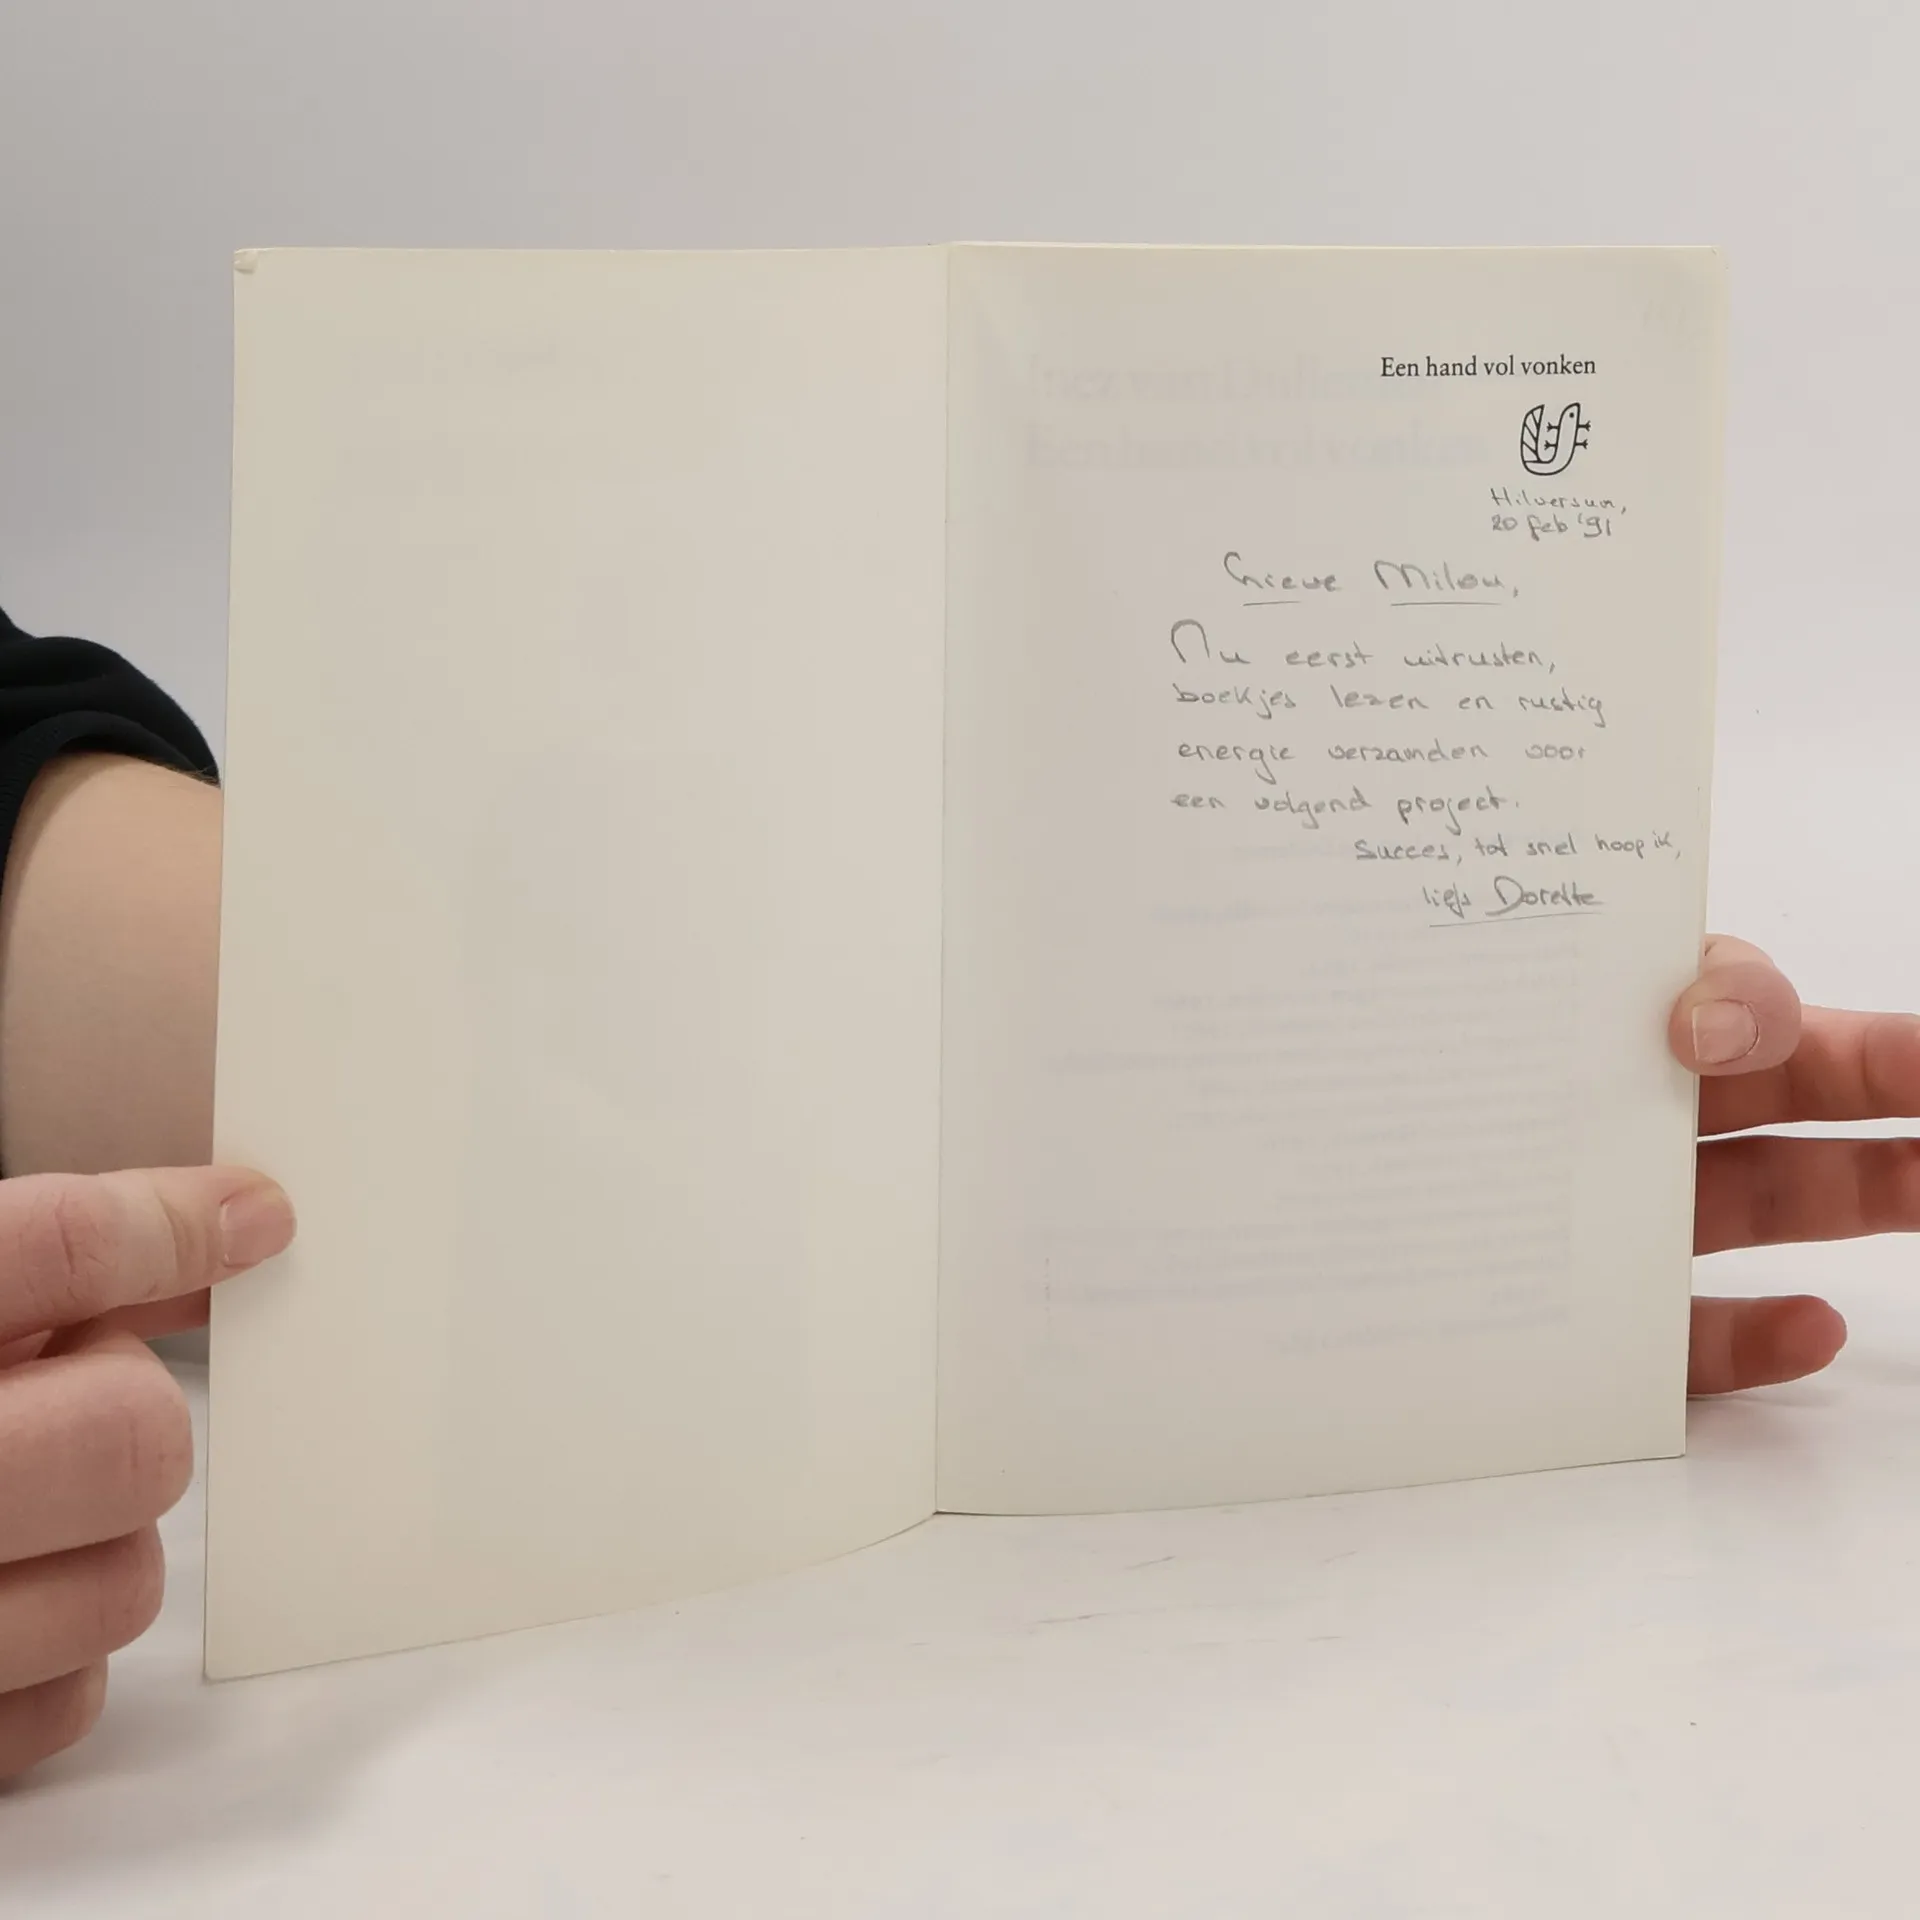 Een hand vol vonken
Hilversum,
20 feb '91
Lieve Milou,
Nu eerst uitrusten,
boekjes lezen en rustig
energie verzamelen voor
een volgend project.
Succes, tot snel hoop ik,
liefs Dorette